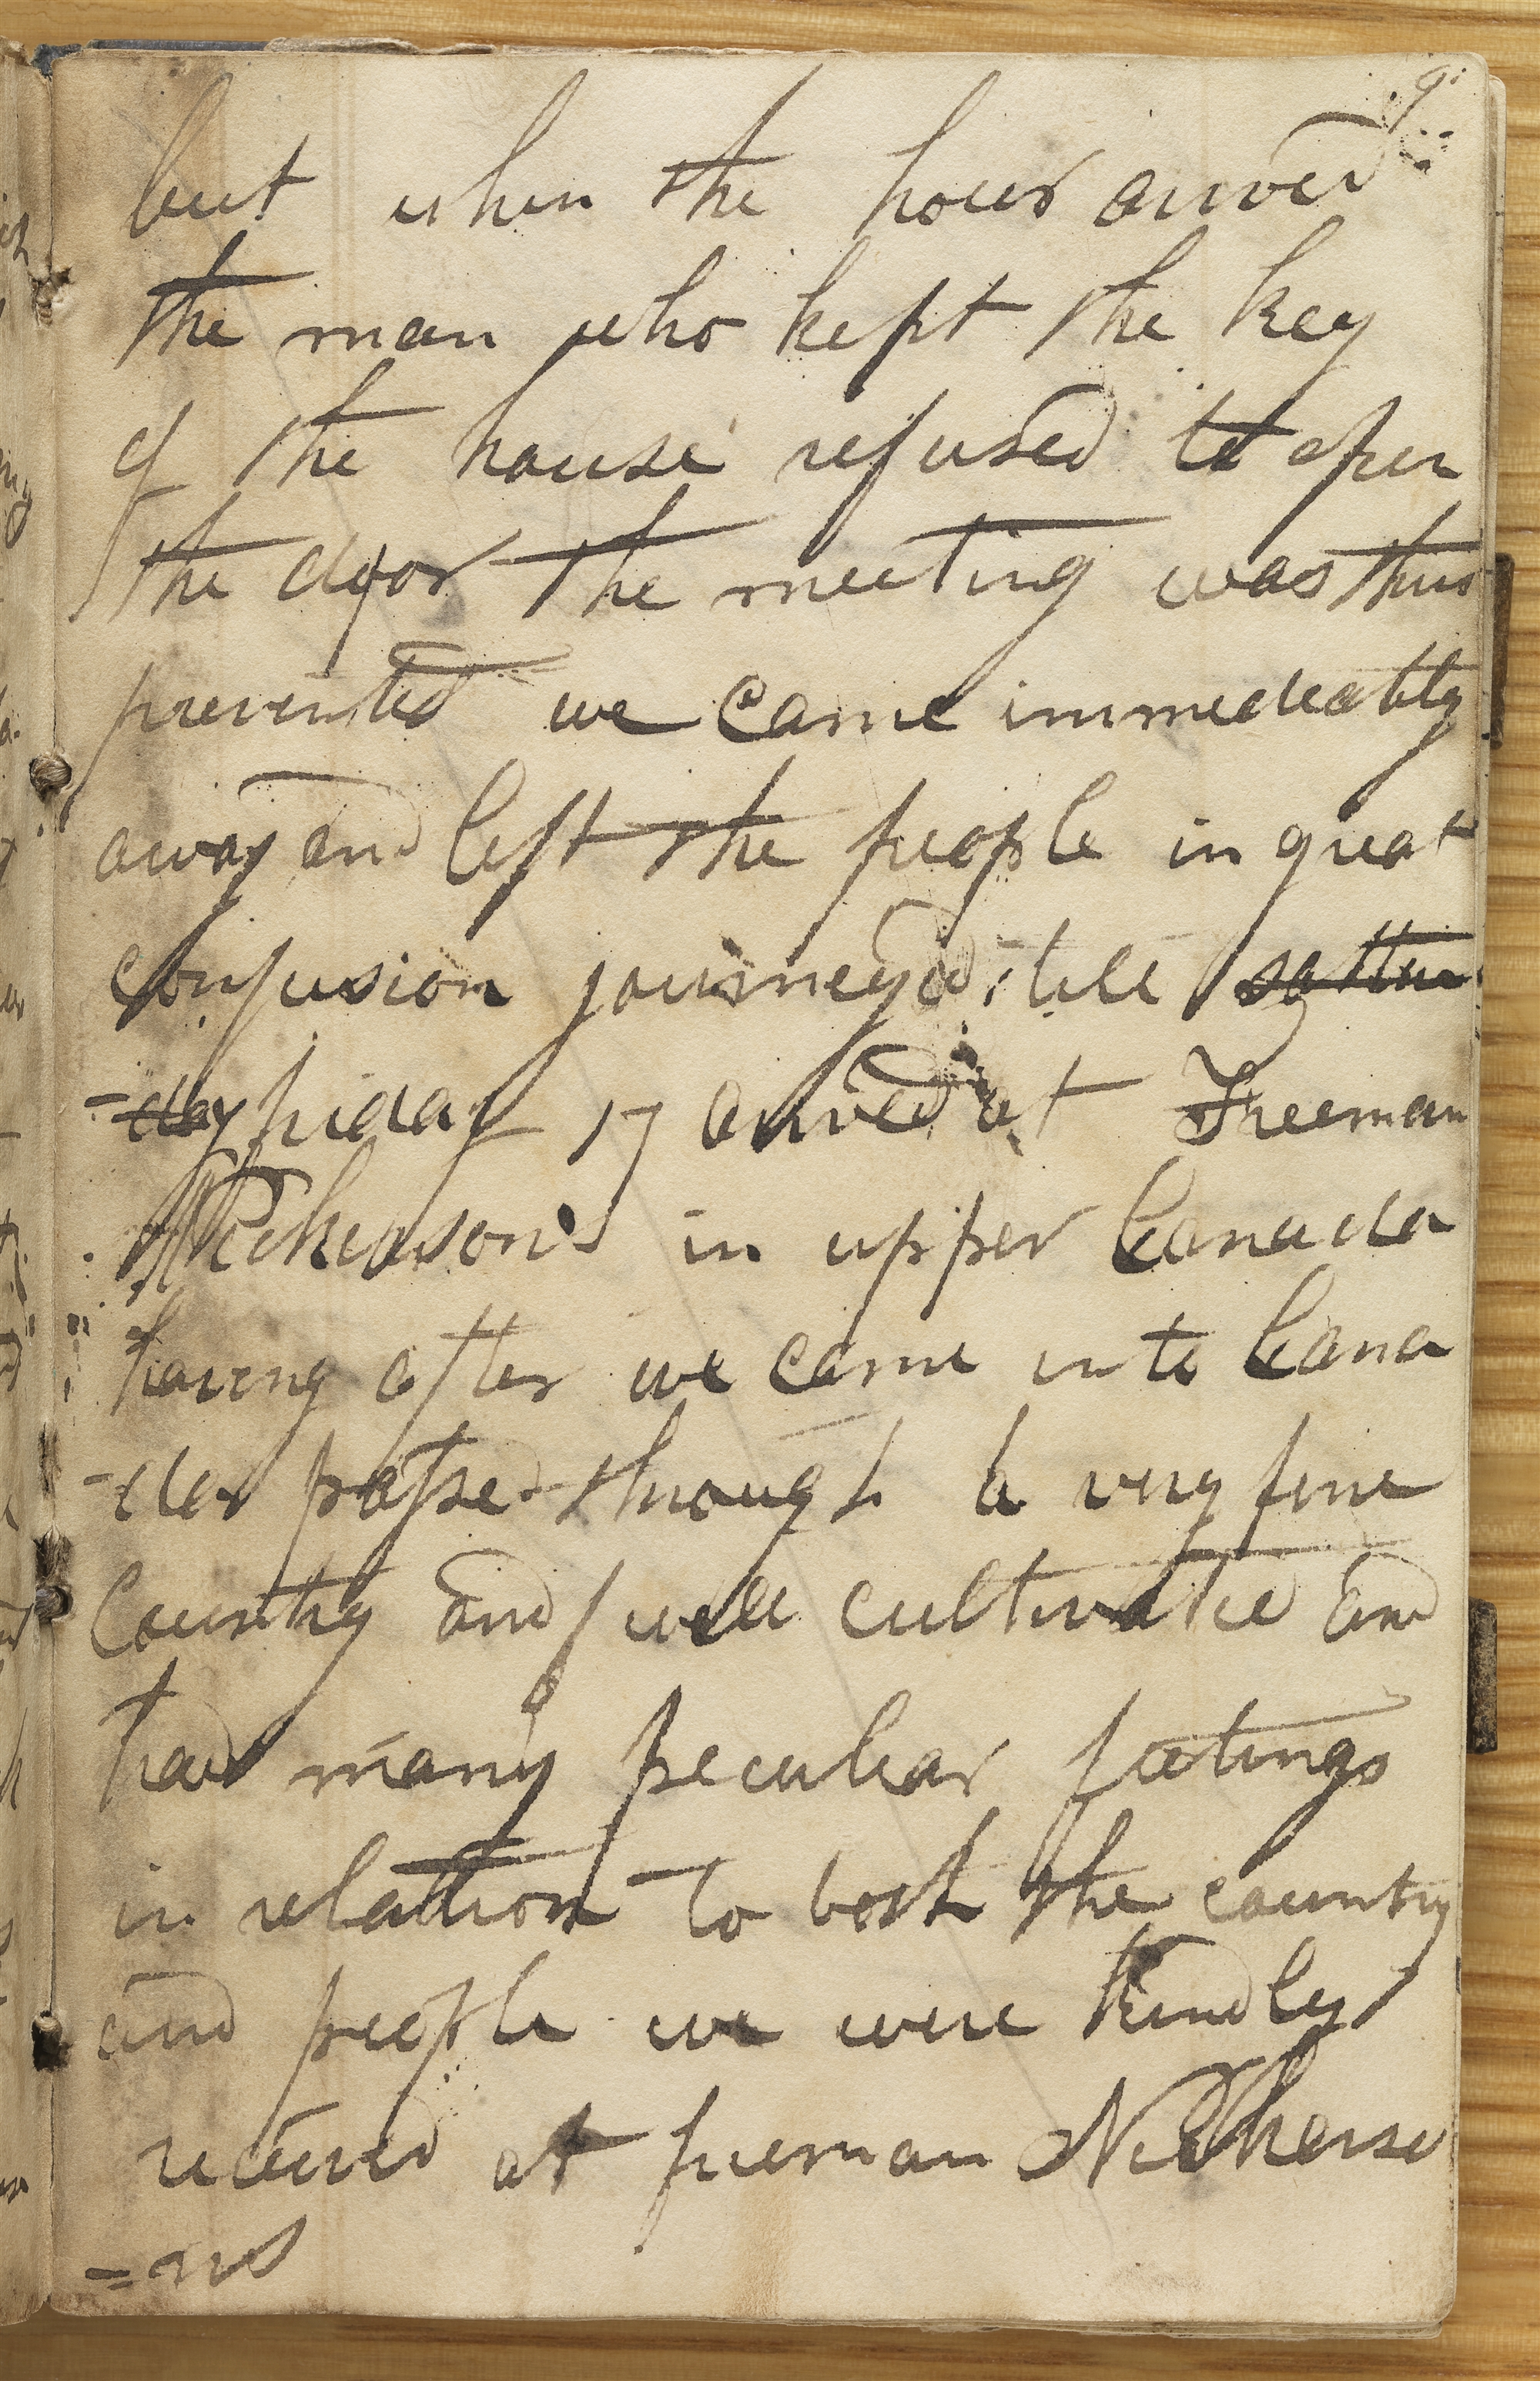 9
but when the hour arived
the man who kept the key
of the house refused to open
the door the meeting was thus
prevented we came immediately
away and left the people in great
confusion journeyed till satur
-day friday 17 arived at Freeman
Nickerson's in upper Canada
having after we came into Cana
-da passed through a very fine
Country and well cultivated and
had many peculiar feelings
in relation to both the country
and people we were kindly
received at freeman Nickerso
=ns